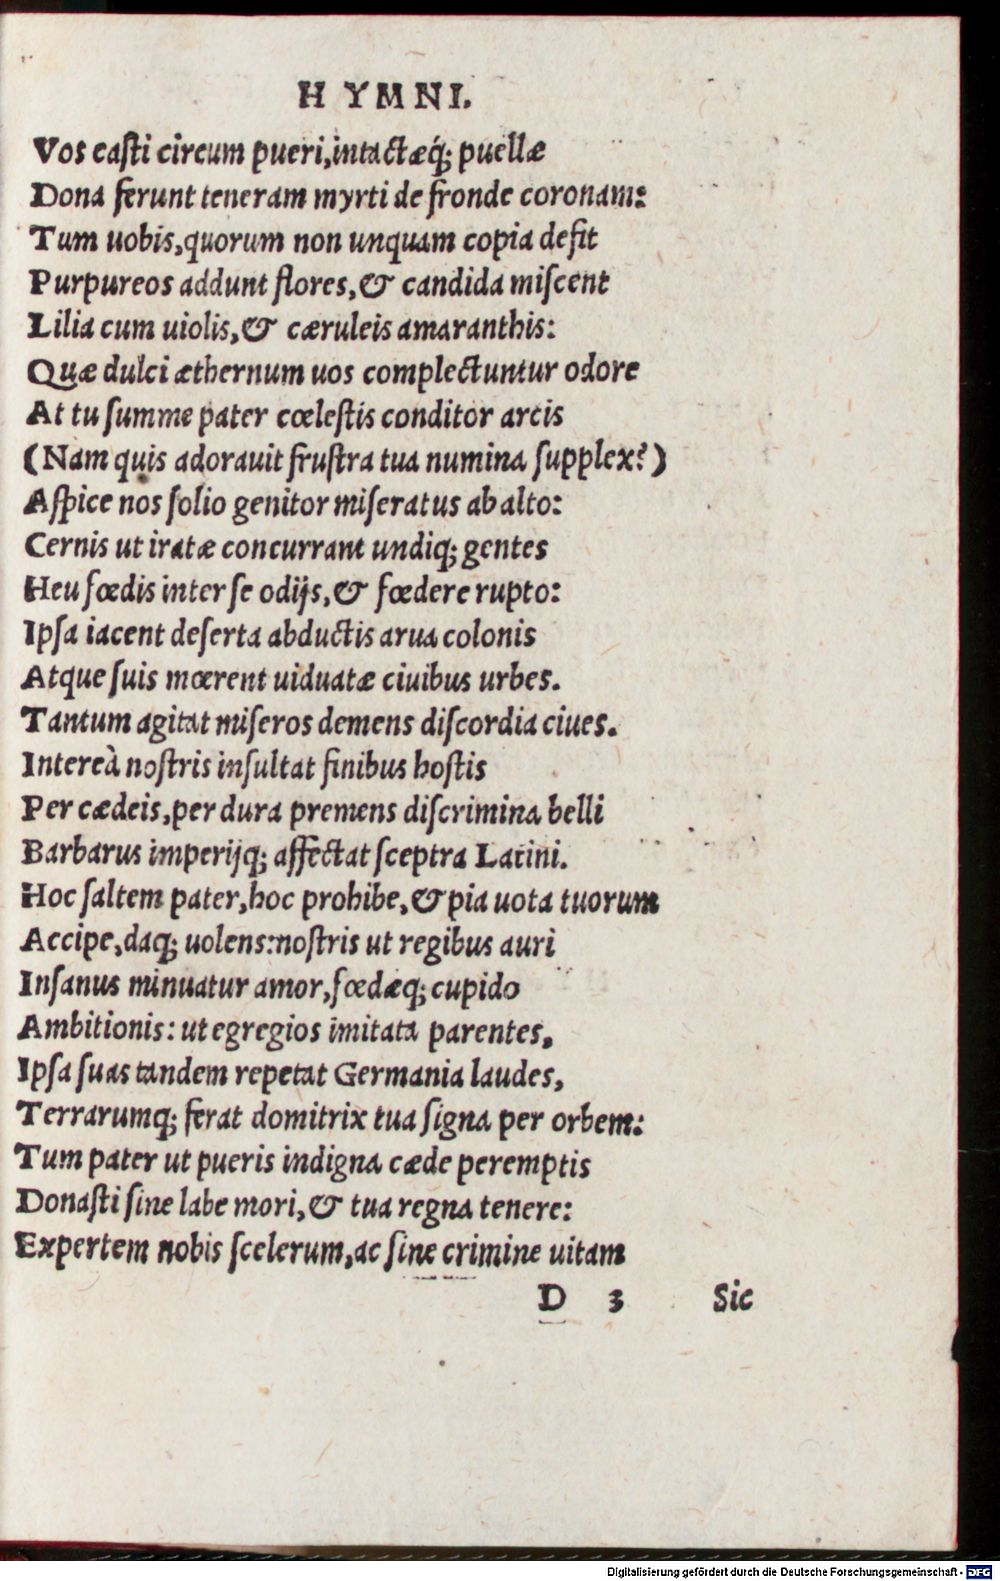 HYMNI.
Vos casti circum pueri, intactæq́; puellæ
Dona ferunt teneram myrti de fronde coronam:
Tum uobis, quorum non unquam copia defit
Purpureos addunt flores, & candida miſcent
Lilia cum uiolis, & cæruleis amaranthis:
Quæ dulci æthernum uos complectuntur odore
At tu ſumme pater cœleſtis conditor arcis
(Nam quis adorauit fruſtra tua numina ſupplex?)
Aſpice nos ſolio genitor miſeratus ab alto:
Cernis ut iratæ concurrant undiq; gentes
Heu fœdis inter ſe odijs, & fœdere rupto:
Ipſa iacent deſerta abductis arua colonis
Atque ſuis mœrent uiduatæ ciuibus urbes.
Tantum agitat miſeros demens diſcordia ciues.
Intereà noſtris inſultat finibus hoſtis
Per cædeis, per dura premens diſcrimina belli
Barbarus imperijq; affectat ſceptra Latini.
Hoc ſaltem pater, hoc prohibe, & pia uota tuorum
Accipe, daq; uolens: noſtris ut regibus auri
Inſanus minuatur amor, fœdæq; cupido
Ambitionis: ut egregios imitata parentes,
Ipſa ſuas tandem repetat Germania laudes,
Terrarumq; ferat domitrix tua ſigna per orbem:
Tum pater ut pueris indigna cæde peremptis
Donaſti ſine labe mori, & tua regna tenere:
Expertem nobis ſcelerum, ac ſine crimine uitam
D 3 Sic
Digitalisierung gefördert durch die Deutsche Forschungsgemeinschaft - DFG